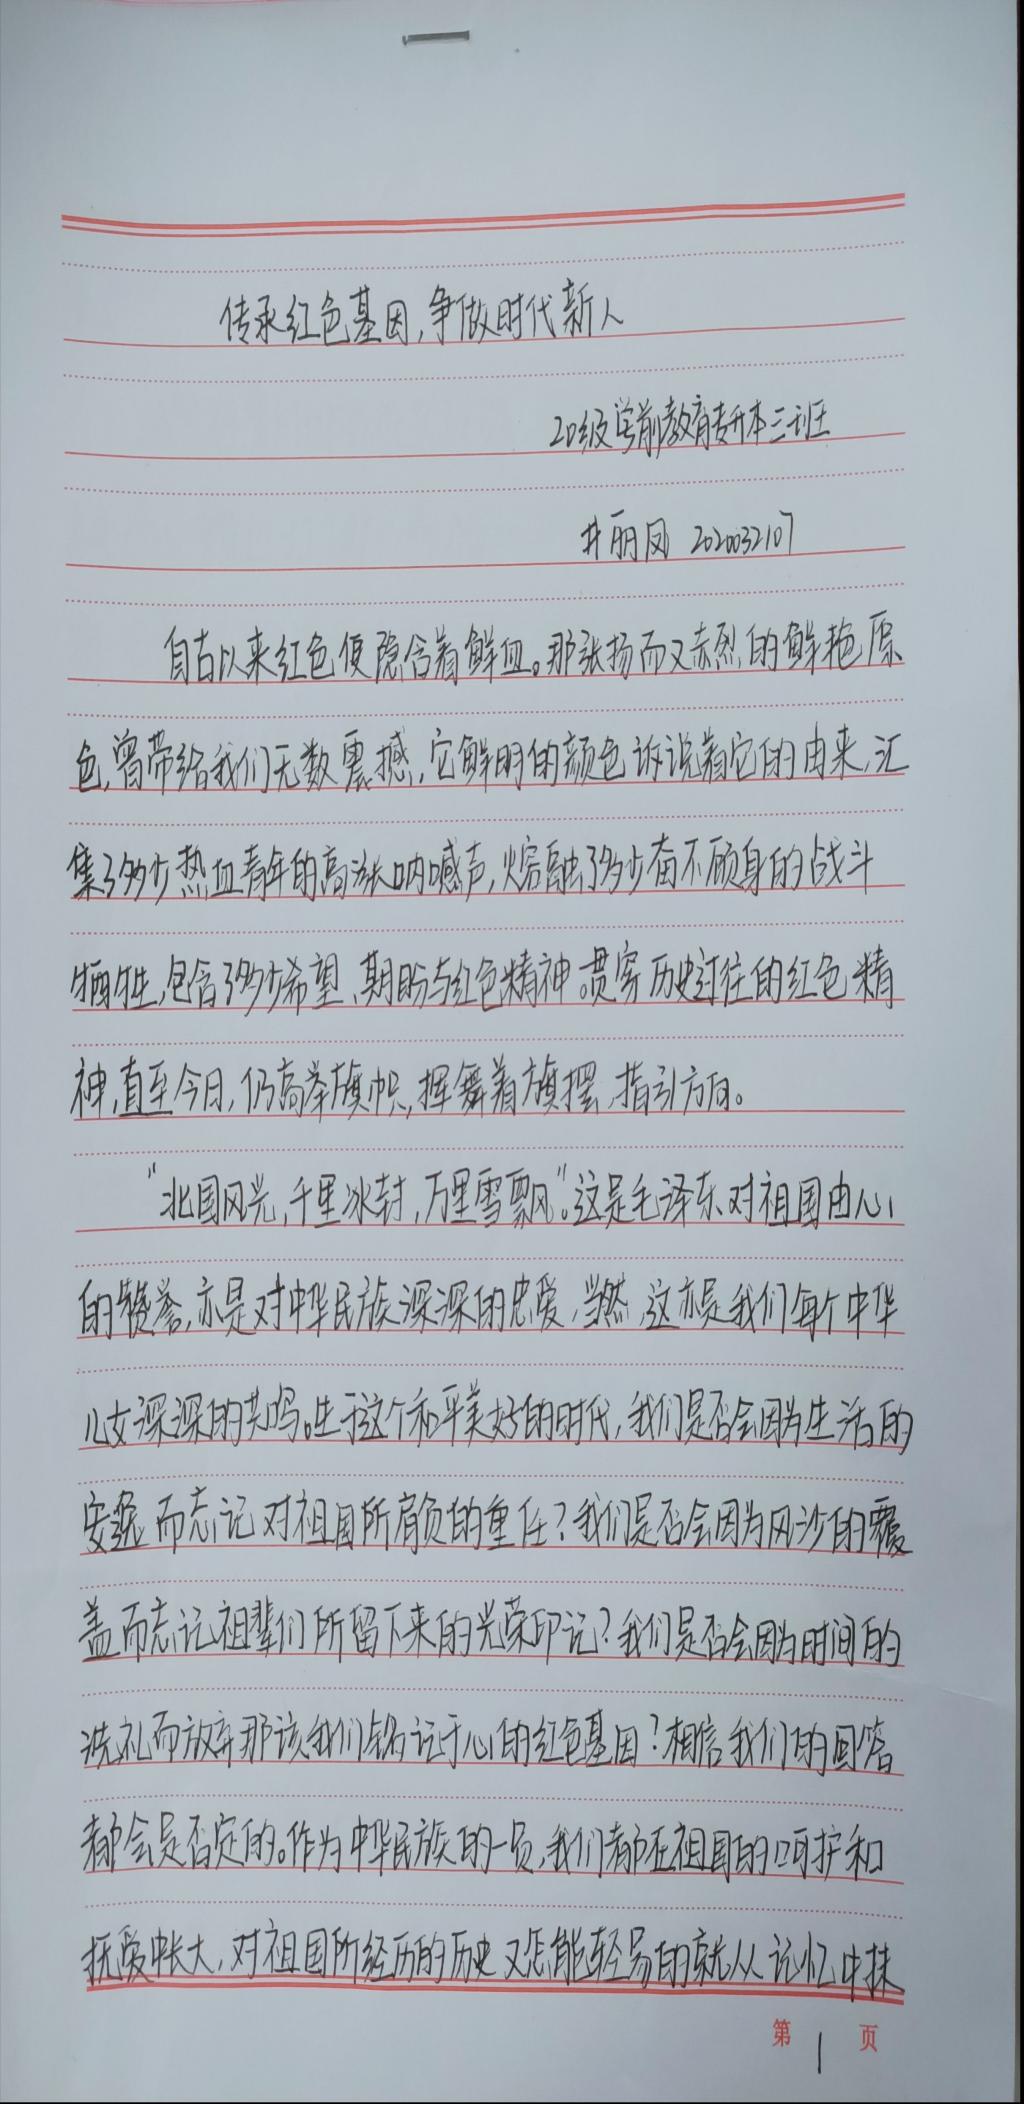 传承红色基因,争做时代新人
20级学前教育专升本三班
井丽凤 2020032107
自古以来红色便隐含着鲜血。那张扬而又赤烈的鲜艳原
色,曾带给我们无数震撼,它鲜明的颜色诉说着它的由来,汇
集了多少热血青年的高涨呐喊声,熔融了多少奋不顾身的战斗
牺牲,包含了多少希望、期盼与红色精神。贯穿历史过往的红色精
神,直至今日,仍高举旗帜,挥舞着旗摆,指引方向。
“北国风光,千里冰封,万里雪飘”。这是毛泽东对祖国由心
的赞誉,亦是对中华民族深深的忠爱,当然,这亦是我们每个中华
儿女深深的共鸣。生于这个和平美好的时代,我们是否会因为生活的
安逸而忘记对祖国所肩负的重任?我们是否会因为风沙的覆
盖而忘记祖辈们所留下来的光荣印记?我们是否会因为时间的
洗礼而放弃那该我们铭记于心的红色基因?相信我们的回答
都会是否定的。作为中华民族的一员,我们都在祖国的呵护和
抚爱中长大,对祖国所经历的历史又怎能轻易的就从记忆中抹
第 1 页